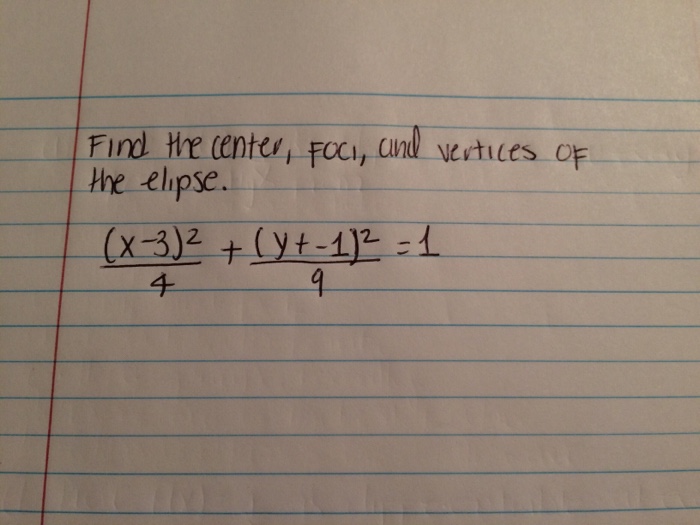 Find the center, foci, and vertices of
the elipse.
(x-3)² + (y+-1)² = 1
4 9